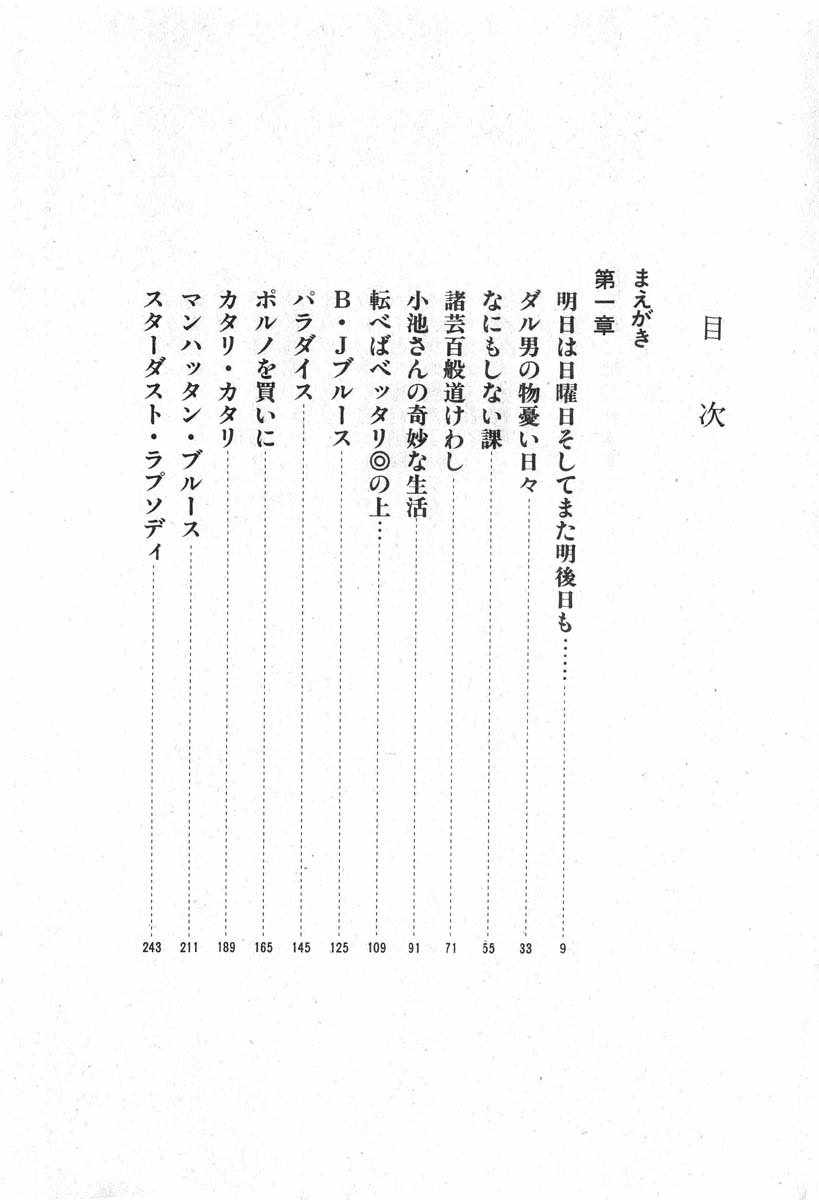 目次
まえがき
第一章
明日は日曜日そしてまた明後日も……9
ダル男の物憂い日々33
なにもしない課55
諸芸百般道けわし71
小池さんの奇妙な生活91
転べばベッタリ◎の上…109
B・Jブルース125
パラダイス145
ポルノを買いに165
カタリ・カタリ189
マンハッタン・ブルース211
スターダスト・ラプソディ243